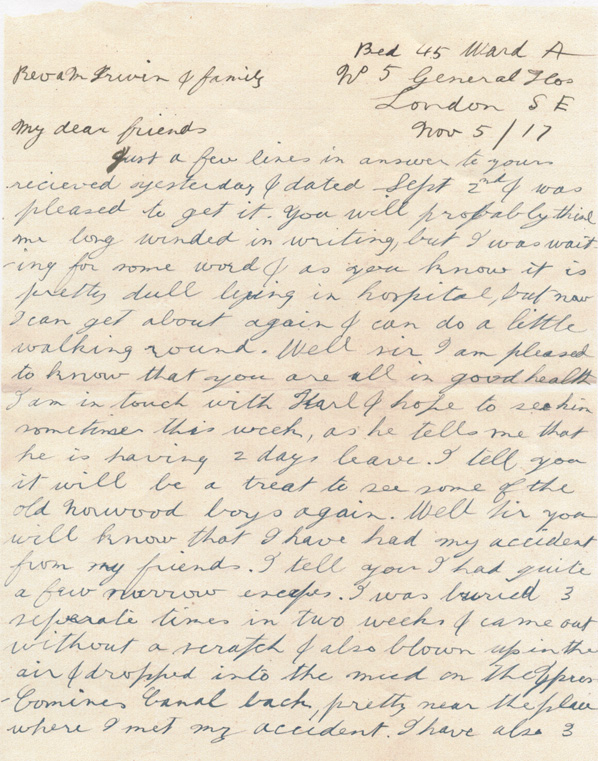 Bed 45 Ward A
Rev & Mr Irwin & family
No 5 General Hos
London S E
My dear friends
Nov 5/17
Just a few lines in answer to yours
recieved yesterday & dated Sept 2nd & was
pleased to get it. You will probably think
me long winded in writing, but I was wait
-ing for some word & as you know it is
pretty dull lying in hospital, but now
I can get about again & can do a little
walking round. Well sir I am pleased
to know that you are all in good health
I am in touch with Harl & hope to see him
sometime this week, as he tells me that
he is having 2 days leave. I tell you
it will be a treat to see some of the
old norwood boys again. Well Sir you
will know that I have had my accident
from my friends. I tell you I had quite
a few norrow escapes. I was buried 3
seperate times in two weeks & came out
without a scratch & also blown up in the
air & dropped into the mud on the Ypres
-Comines Canal back, pretty near the place
where I met my accident. I have also 3